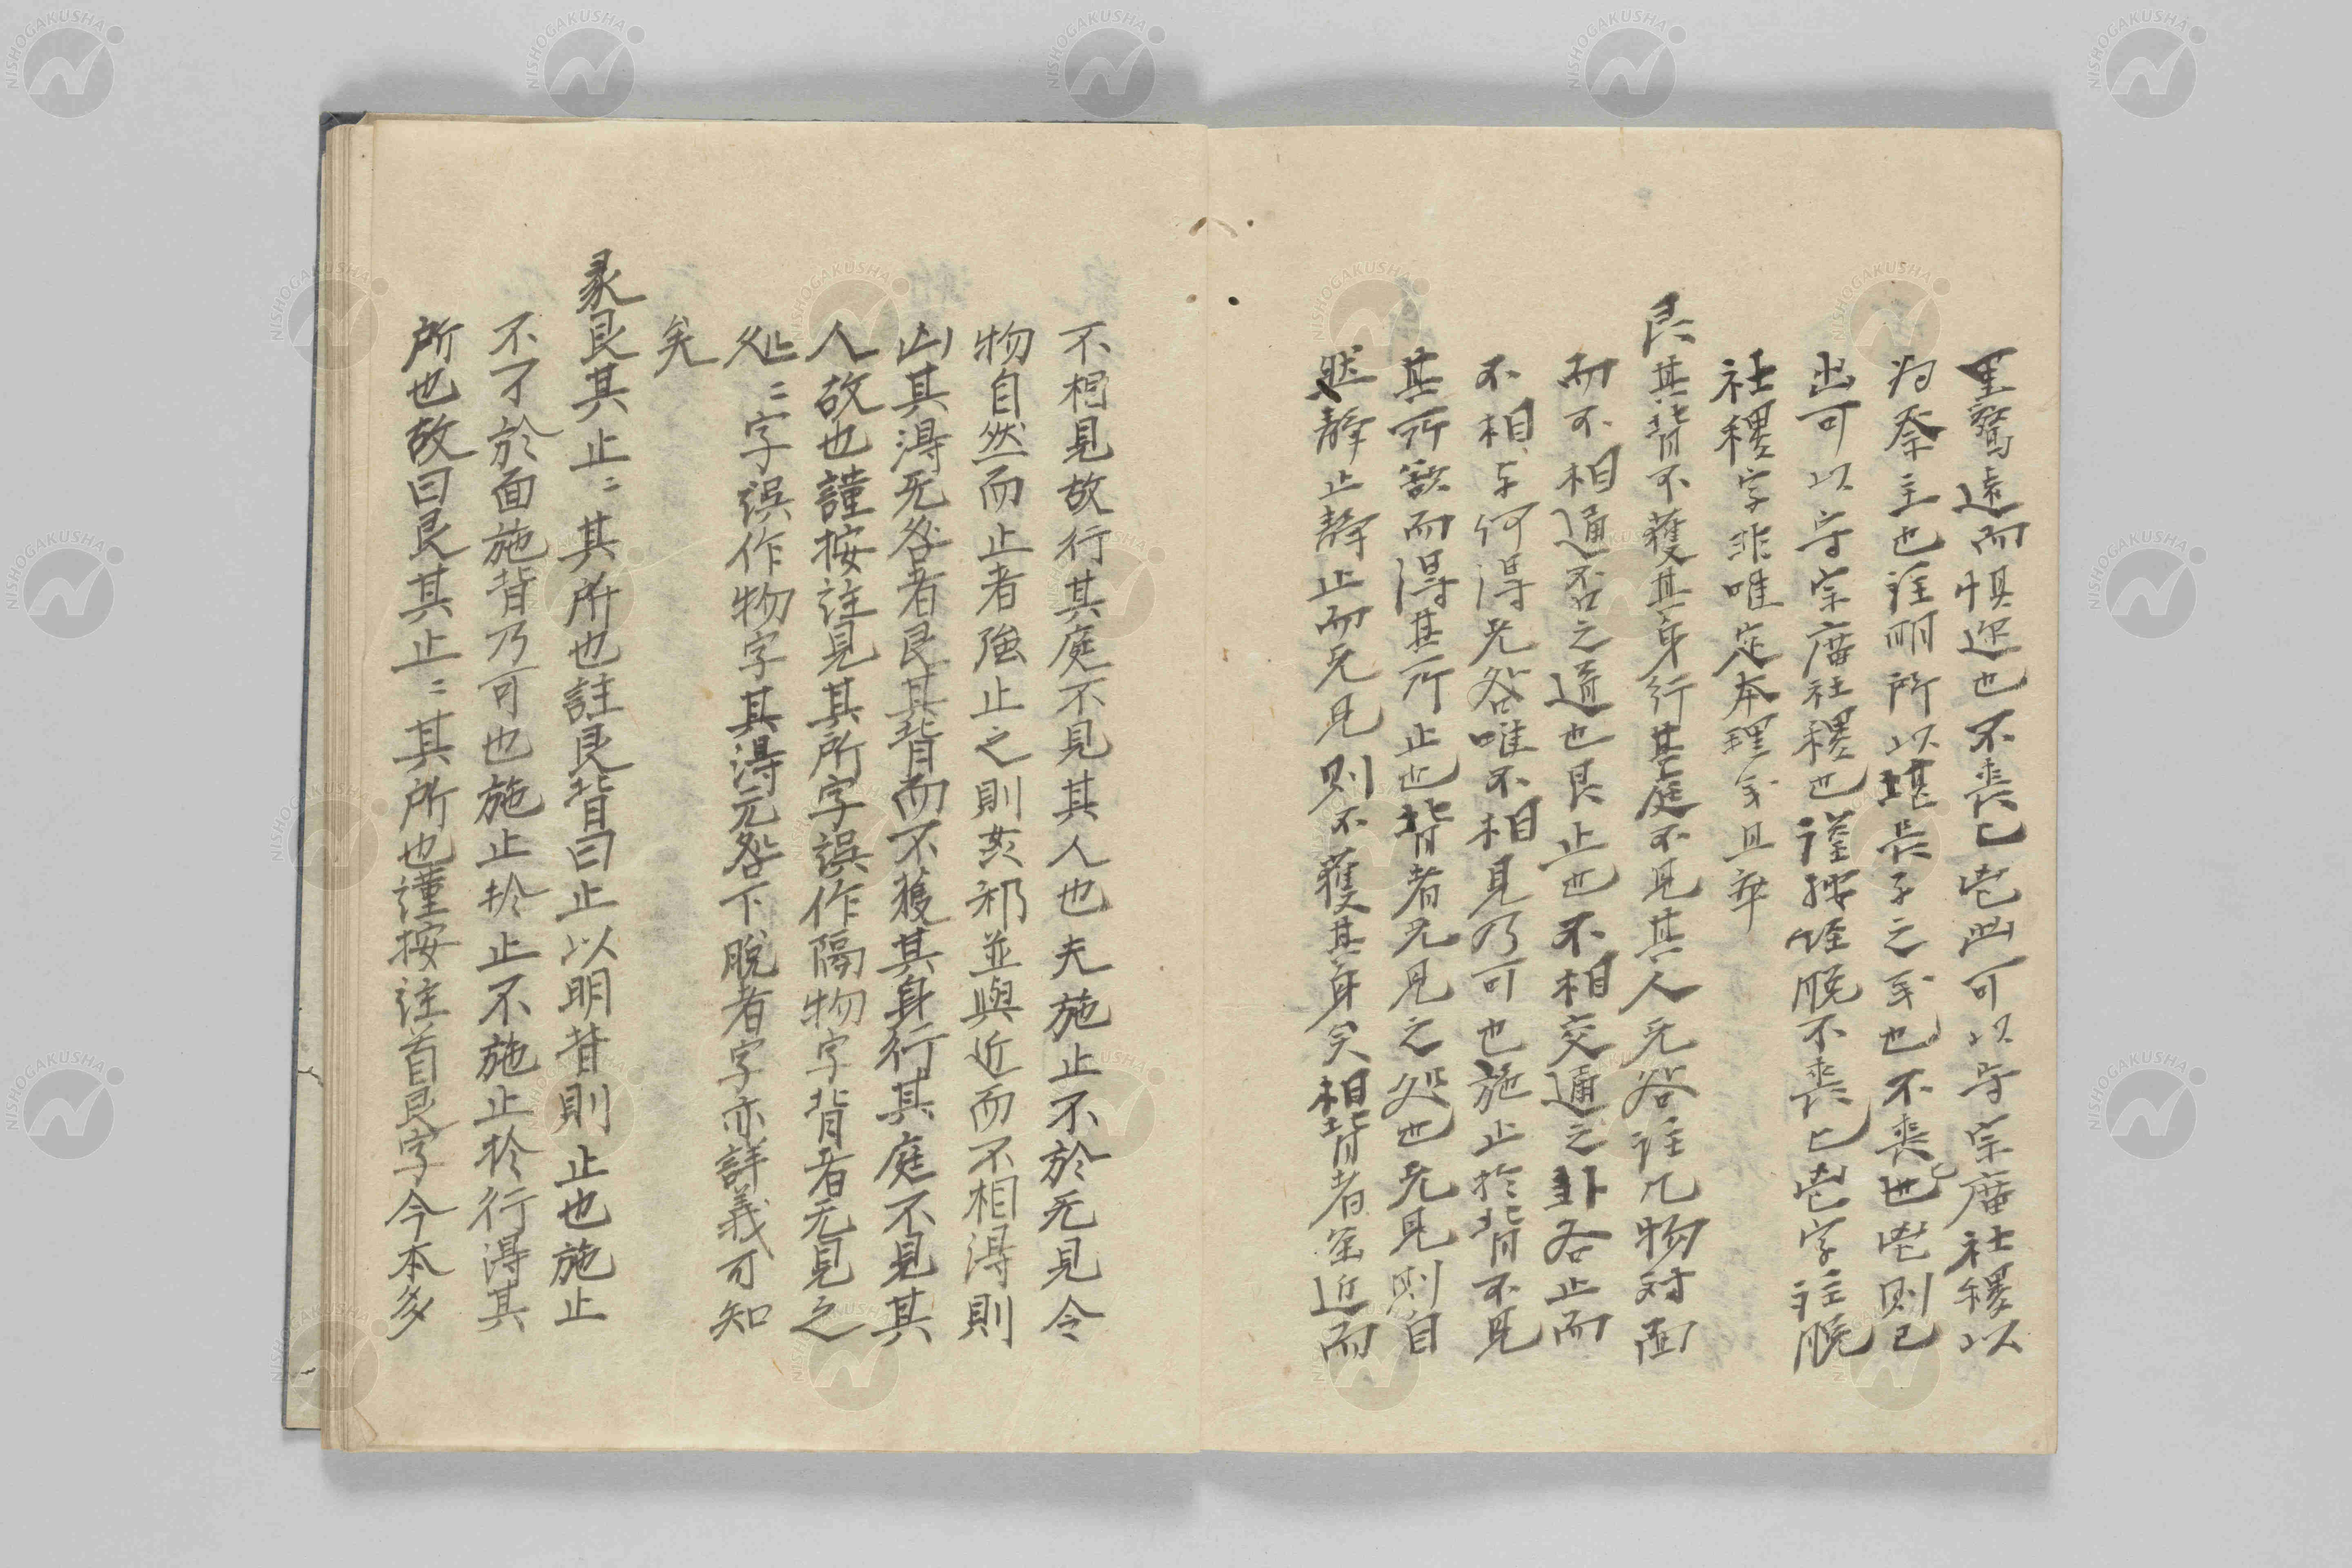 里驚遠而惧迩也不喪匕鬯此可以守宗庿社稷以
为祭主也註明所以堪長子之義也不喪匕也鬯則已
出可以守宗庿社稷也謹按經脱不喪匕鬯字註脱
社稷字非唯定本理義且舉
艮其背不獲其身行其庭不見其人无咎註凡物对面
而不相通否之道也艮止也不相交通之卦各止而
不相与何得无咎唯不相見乃可也施止於背不見
其所欲而得其所止也背者无見之処也无見則自
然静止静止而无見則不獲其身矣相背者虽近而
不相見故行其庭不見其人也夫施止不於无見令
物自然而止者強止之則姦邪並與近而不相得則
凶其得无咎者艮其背而不獲其身行其庭不見其
人故也謹按註見其所字誤作隔物字背者无見之
処々二字誤作物字其得无咎下脱者字亦詳義可知
矣
彖艮其止〻其所也註艮背曰止以明背則止也施止
不可於面施背乃可也施止於止不施止於行得其
所也故曰艮其止〻其所也謹按注首艮字今本多